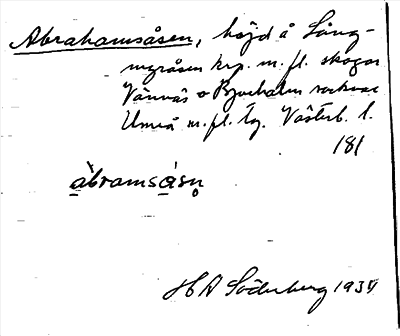 Abrahamsåsen, höjd å Lång-
myråsen krp. m. fl. skogar
Vännäs o Bjurholm socknar
Umeå m. fl. tg. Västerb. l.
181
àbramsåsn̥
H A Söderberg 193